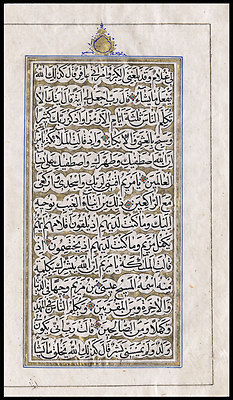 غُلَامٌ وَقَدْ بَلَغَنِيَ الْكِبَرُ وَامْرَأَتِي عَاقِرٌ قَالَ كَذَلِكَ اللَّهُ
يَفْعَلُ مَا يَشَاءُ قَالَ رَبِّ اجْعَلْ لِي آيَةً قَالَ آيَتُكَ أَلَّا
تُكَلِّمَ النَّاسَ ثَلَاثَةَ أَيَّامٍ إِلَّا رَمْزًا وَاذْكُرْ رَبَّكَ كَثِيرًا
وَسَبِّحْ بِالْعَشِيِّ وَالْإِبْكَارِ وَإِذْ قَالَتِ الْمَلَائِكَةُ يَا مَرْيَمُ
إِنَّ اللَّهَ اصْطَفَاكِ وَطَهَّرَكِ وَاصْطَفَاكِ عَلَى نِسَاءِ
الْعَالَمِينَ يَا مَرْيَمُ اقْنُتِي لِرَبِّكِ وَاسْجُدِي وَارْكَعِي
مَعَ الرَّاكِعِينَ ذَلِكَ مِنْ أَنْبَاءِ الْغَيْبِ نُوحِيهِ
إِلَيْكَ وَمَا كُنْتَ لَدَيْهِمْ إِذْ يُلْقُونَ أَقْلَامَهُمْ أَيُّهُمْ
يَكْفُلُ مَرْيَمَ وَمَا كُنْتَ لَدَيْهِمْ إِذْ يَخْتَصِمُونَ إِذْ
قَالَتِ الْمَلَائِكَةُ يَا مَرْيَمُ إِنَّ اللَّهَ يُبَشِّرُكِ بِكَلِمَةٍ
مِنْهُ اسْمُهُ الْمَسِيحُ عِيسَى ابْنُ مَرْيَمَ وَجِيهًا فِي الدُّنْيَا
وَالْآخِرَةِ وَمِنَ الْمُقَرَّبِينَ وَيُكَلِّمُ النَّاسَ فِي الْمَهْدِ
وَكَهْلًا وَمِنَ الصَّالِحِينَ قَالَتْ رَبِّ أَنَّى يَكُونُ لِي
وَلَدٌ وَلَمْ يَمْسَسْنِي بَشَرٌ قَالَ كَذَلِكِ اللَّهُ يَخْلُقُ مَا يَشَاءُ